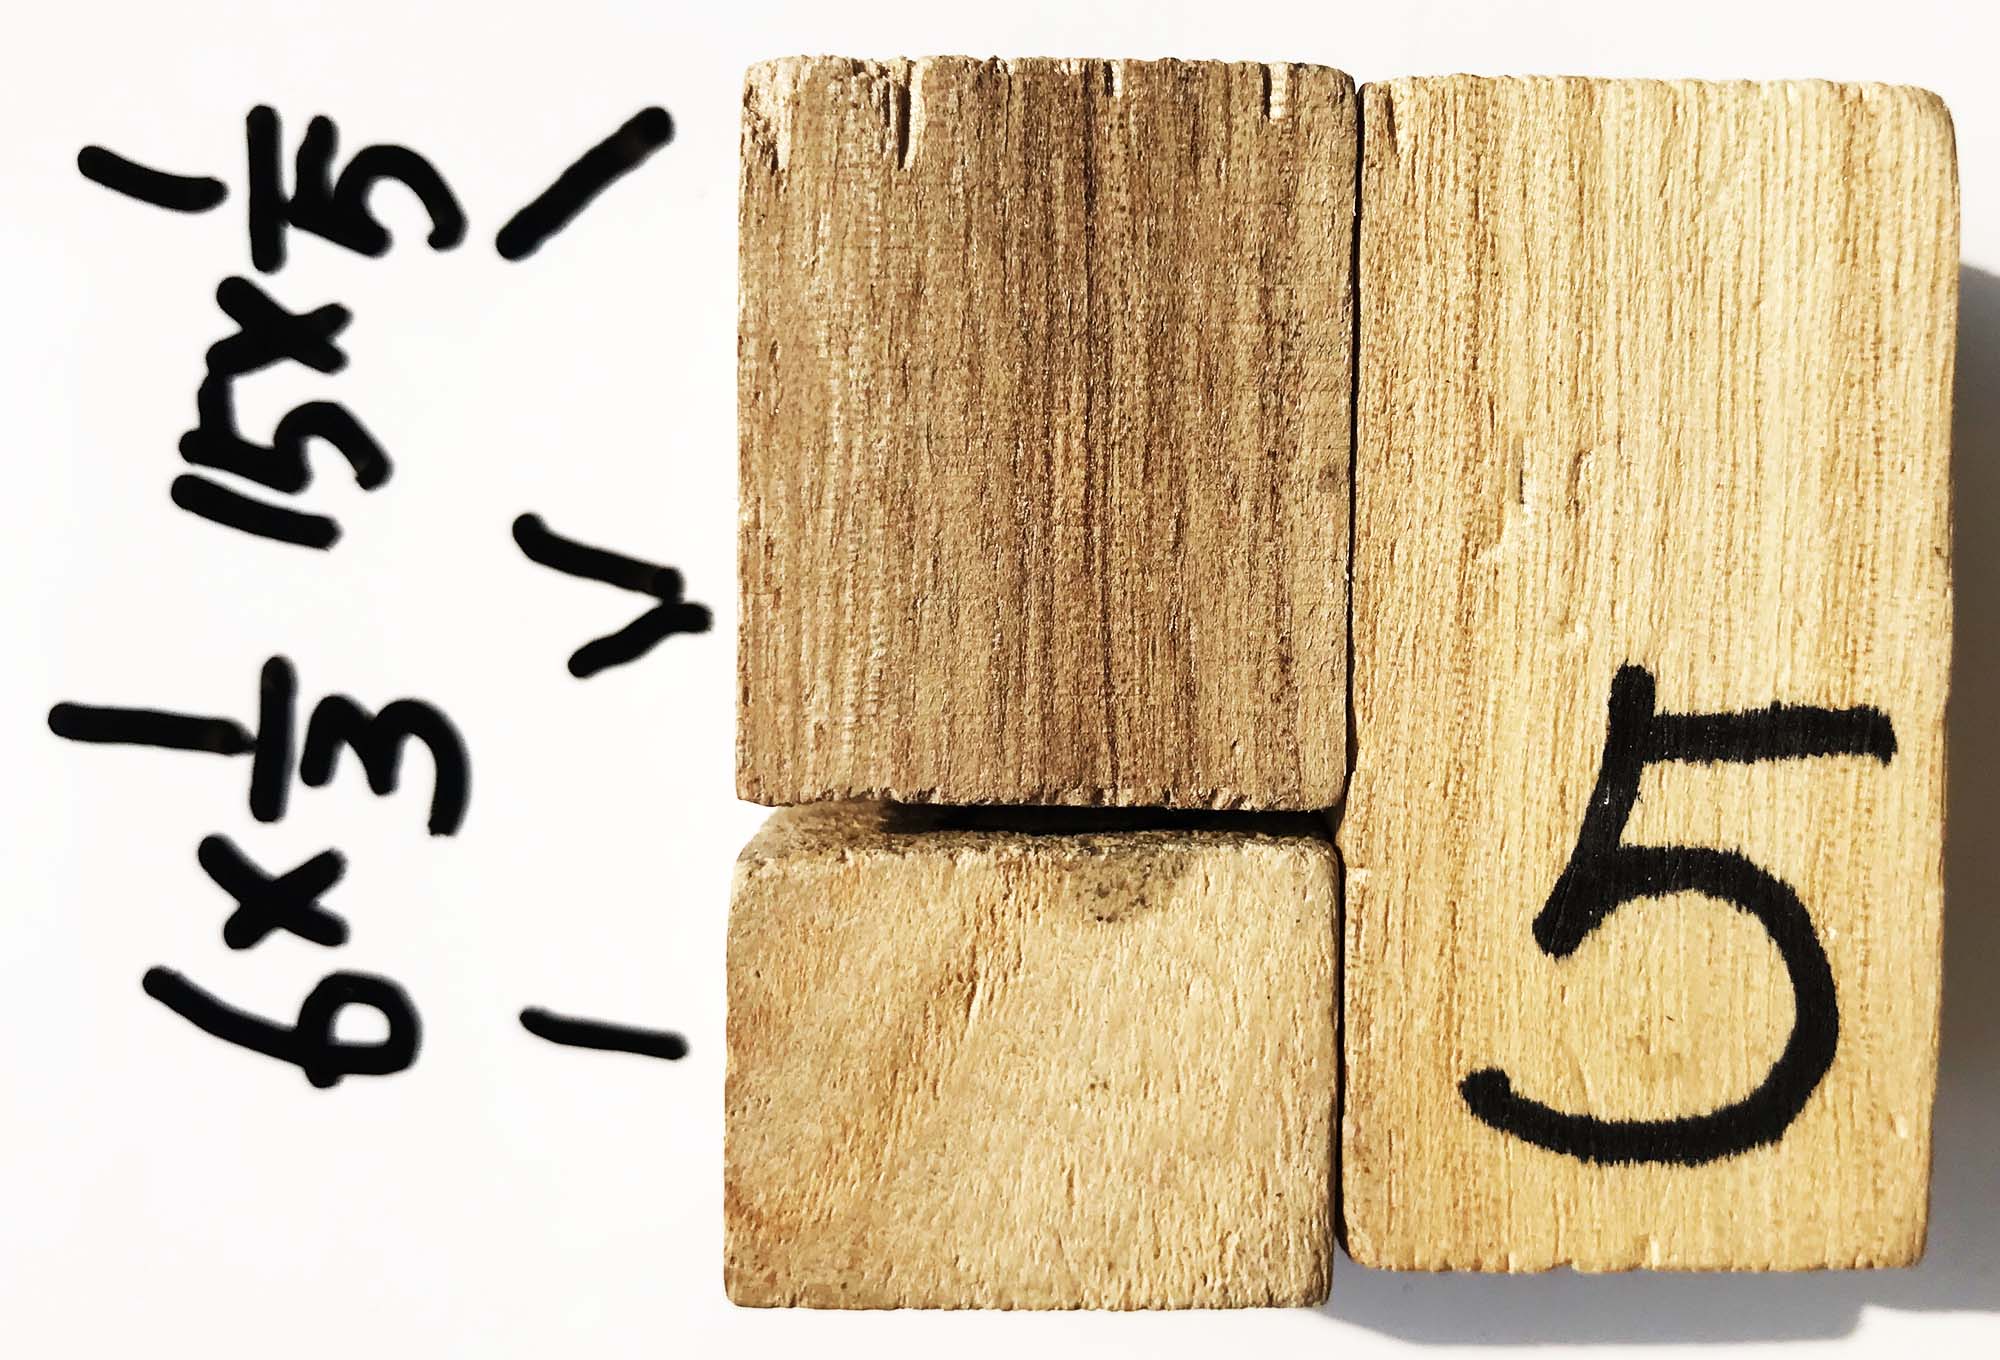 6 × 1/3 15 × 1/5
5